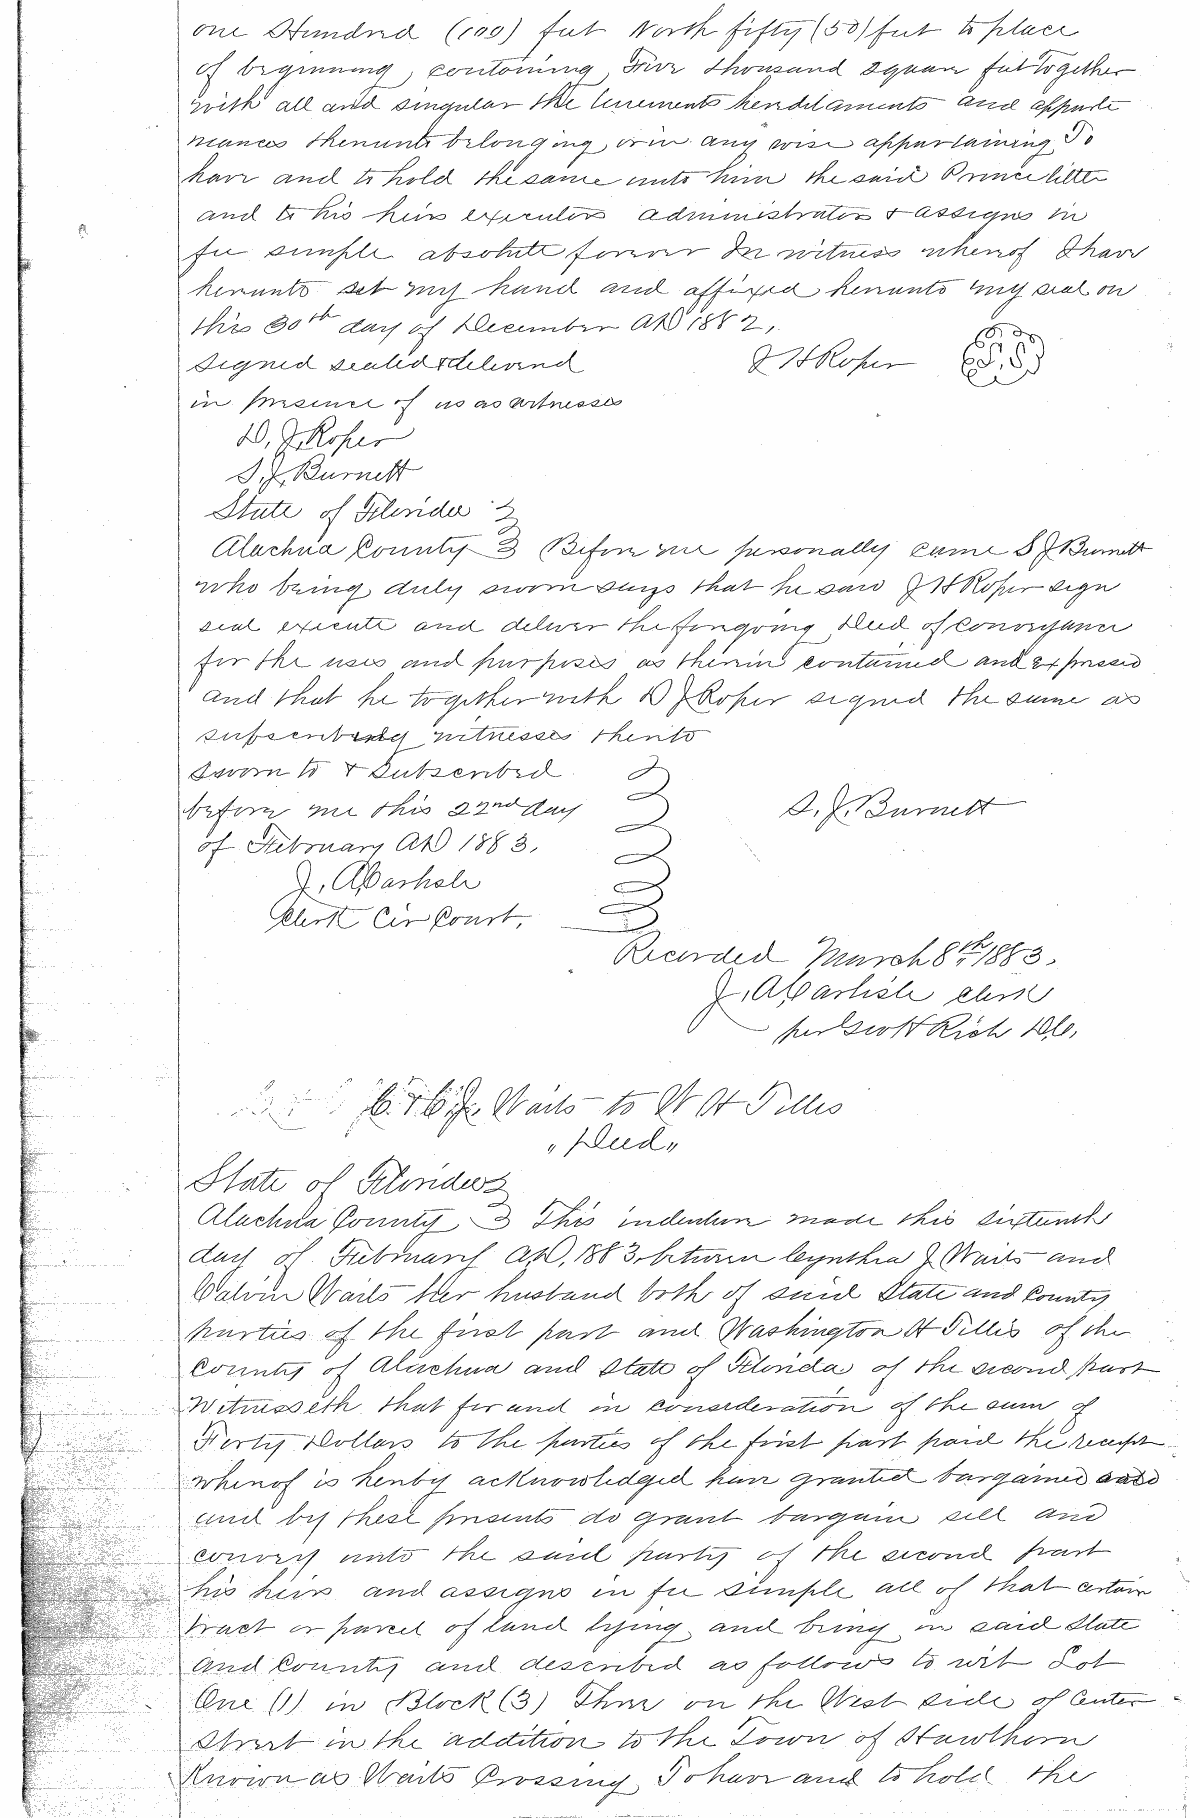 one Hundred (100) feet North fifty (50) feet to place
of beginning, containing Five thousand square feet together
with all and singular the tenements hereditaments and appurte
nances thereunto belonging or in any wise appurtaining To
have and to hold the same unto him the said Prince
and to his heirs executors administrators & assigns in
fee simple absolute forever In witness whereof I have
hereunto set my hand and affixed hereunto my seal on
this 30th day of December AD 1882,
Signed sealed & delivered J H Roper
in presence of us as witnesses
D. J. Roper
S. J. Burnett
State of Florida
Alachua County Before me personally came S J Burnett
who being duly sworn says that he saw J H Roper sign
seal execute and deliver the foregoing Deed of Conveyance
for the uses and purposes as therein contained and expressed
and that he together with D J Roper signed the same as
subscribing witnesses thereto
Sworn to & Subscribed
before me this 22nd day S. J. Burnett
of February AD 1883.
J. A. Carlisle
Clerk Cir Court.
Recorded March 8th 1883.
J. A. Carlisle Clerk
per Scott Rich D.C.
C. & C. J. Waits to W H Tillis
"Deed"
State of Florida
Alachua County This indenture made this sixteenth
day of February A.D. 1883 between Cynthia J Waits and
Calvin Waits her husband both of said State and County
parties of the first part and Washington H Tillis of the
County of Alachua and State of Florida of the second part
Witnesseth that for and in consideration of the sum of
Forty Dollars to the parties of the first part paid the receipt
whereof is hereby acknowledged have granted bargained sold
and by these presents do grant bargain sell and
convey unto the said party of the second part
his heirs and assigns in fee simple all of that certain
tract or parcel of land lying and being in said State
and County and described as follows to wit Lot
One (1) in Block (3) Three on the West side of Center
Street in the addition to the Town of Hawthorn
Known as Waits Crossing, To have and to hold the